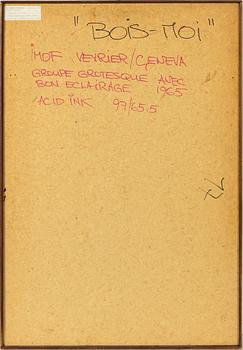 "BOIS-MOI"
IMOF VEYRIER/GENEVA
GROUPE GROTESQUE AVEC
BON ECLAIRAGE 1965
ACID INK 97/65.5